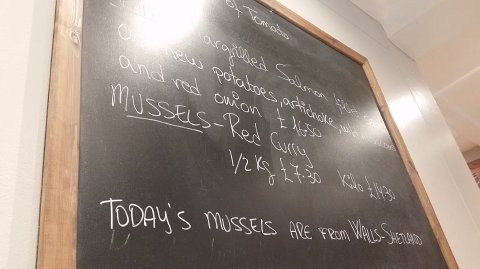 of Tomato
argrilled Salmon fillet
and new potatoes, artichoke, wild
and red onion £ 16.50
MUSSELS - Red Curry
1/2 Kg £7.30 Kilo £14.30
TODAY'S MUSSELS ARE FROM WALLS-SHETLAND